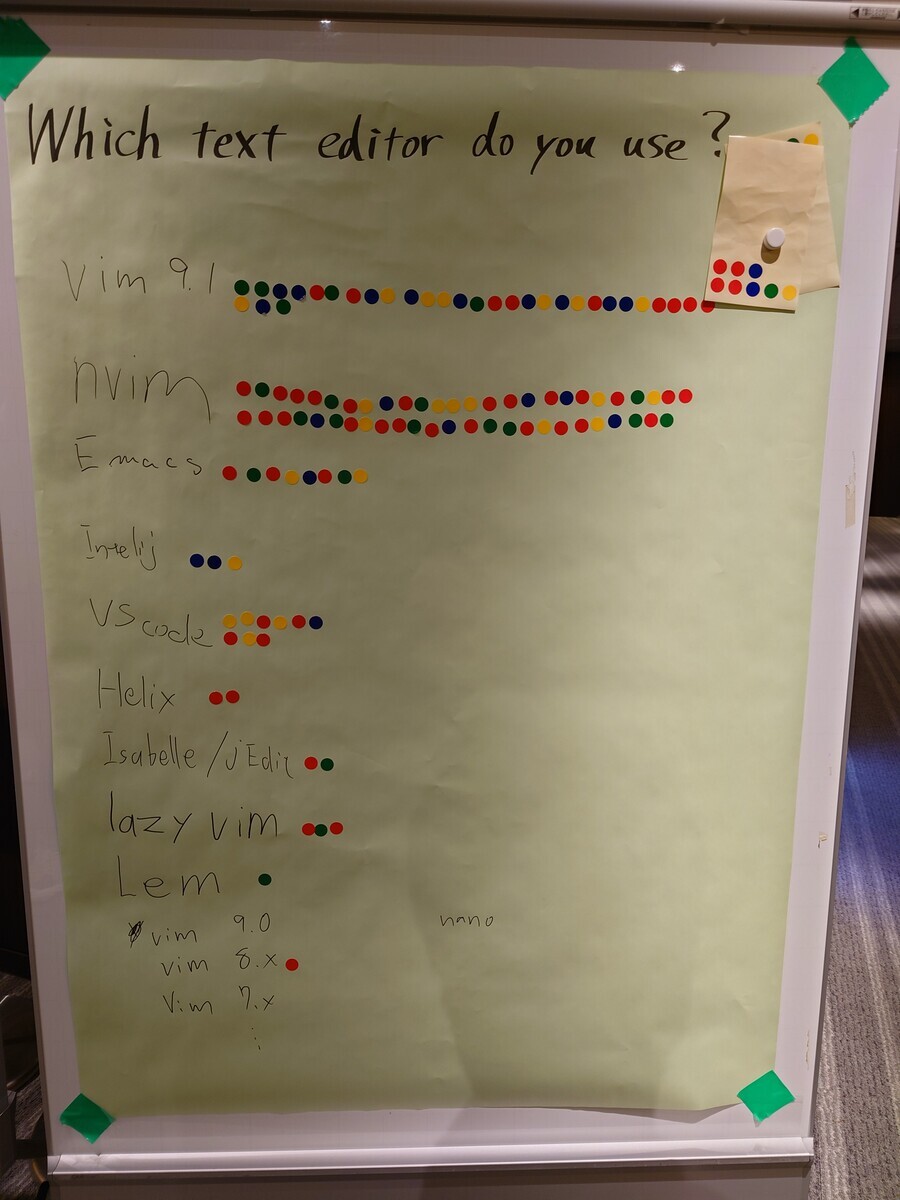 Which text editor do you use?
Vim 9.1
nvim
Emacs
Intelij
VScode
Helix
Isabelle/jEdit
lazy vim
Lem
vim 9.0
nano
vim 8.x
Vim 7.x
⋮